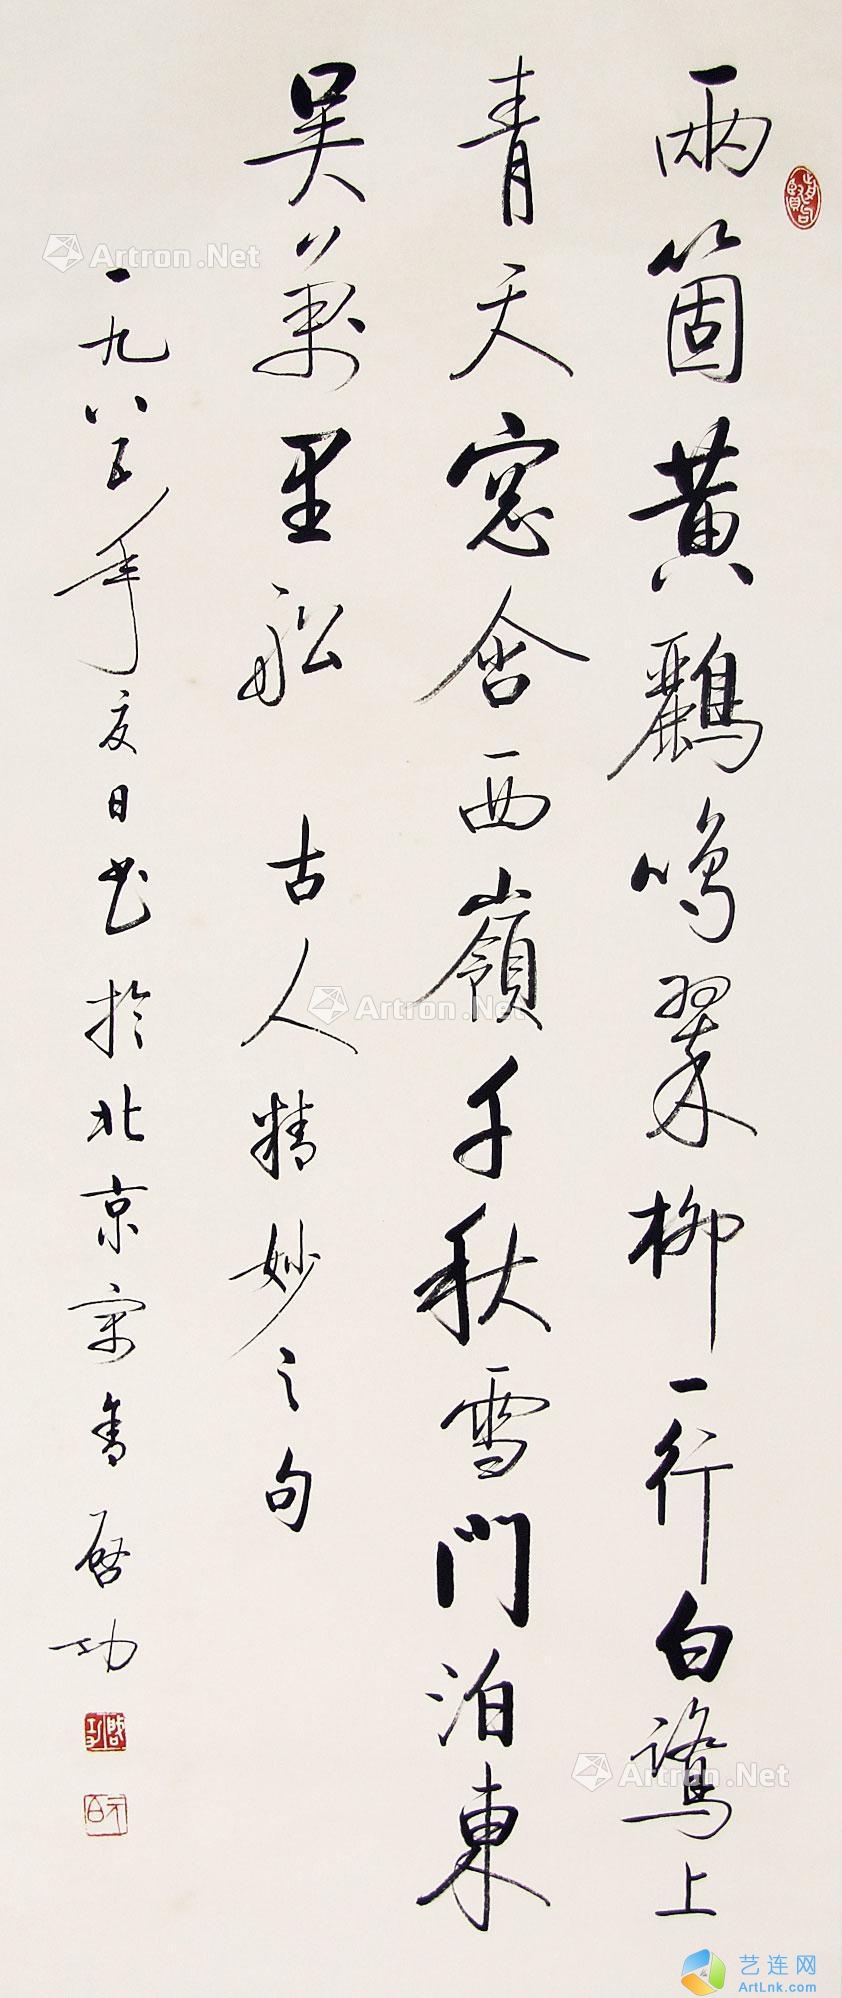 兩箇黃鸝鳴翠柳一行白鷺上
青天窓含西嶺千秋雪門泊東
吴萬里船 古人精妙之句
一九八五年夏日書於北京寓舍 啓功
啟功
元白
Artron.Net
Artron.Net
Artron.Net
艺连网
ArtLnk.com